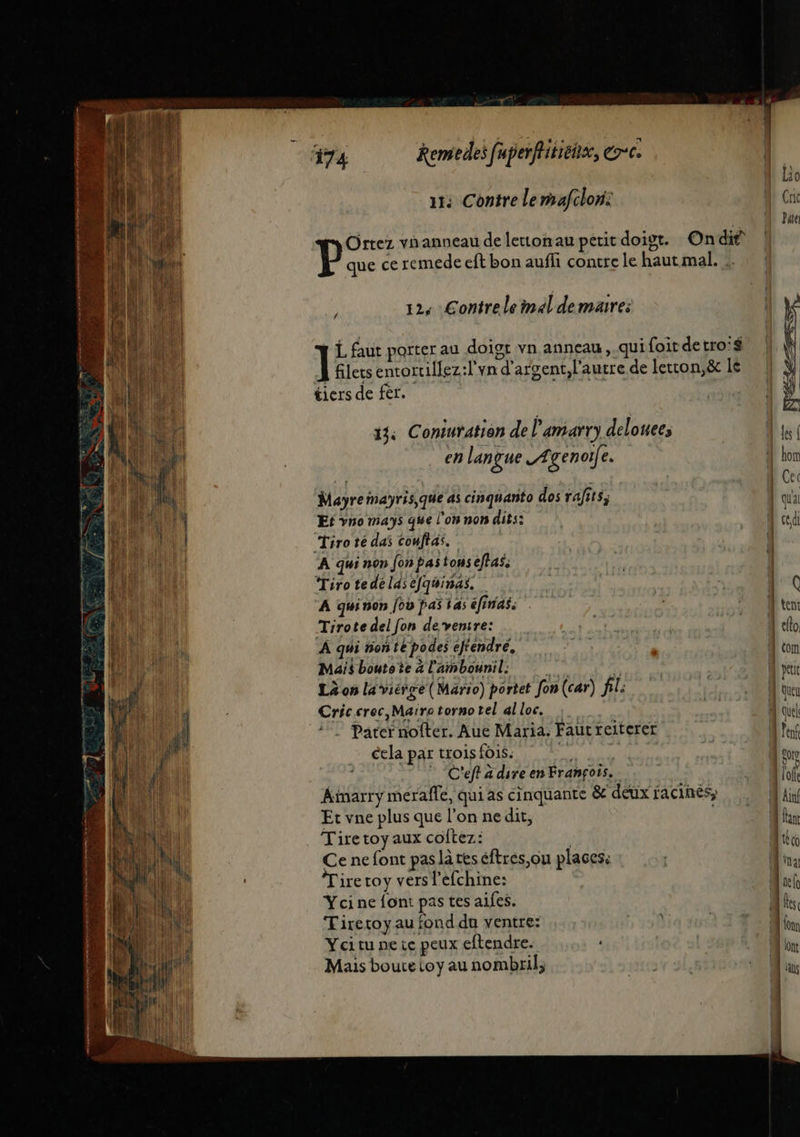 174 Remedes ſuperſtitieux, &c.
11. Contre le maſclon:
POrtez vn anneau de letton au petit doigt. On dit
que ce remede eſt bon auſſi contre le haut mal.
12. Contre le mal de maire:
IL faut porter au doigt vn anneau, qui ſoit de trois
filets entortillez: l'vn d'argent, l'autre de letton, & le
tiers de fer.
13. Coniuration de l'amarry delouees,
en langue Agenoiſe.
Mayre mayris, que as cinquanto dos raſits,
Et vno mays que l'on non dits:
Tiro té das couſtas,
A qui non ſon pas tous eſtas,
Tiro te dé las eſquinas,
A qui non ſou pas tas éſinas,
Tiro te del ſon de ventre:
A qui non té podes eſtendré,
Mais bouto te à l'ambounil:
Là on la viérge (Mario) portet ſon (car) fil:
Cric croc, Mairo torno tel al loc.
Pater noſter. Aue Maria. Faut reiterer
cela par trois fois.
C'eſt à dire en François.
Amarry meraſſe, qui as cinquante & deux racines,
Et vne plus que l'on ne dit,
Tire toy aux coſtez:
Ce ne ſont pas là tes éſtres, ou places.
Tire toy vers l'eſchine:
Y ci ne ſont pas tes aiſes.
Tire toy au fond du ventre:
Y ci tu ne te peux eſtendre.
Mais boute toy au nombril,